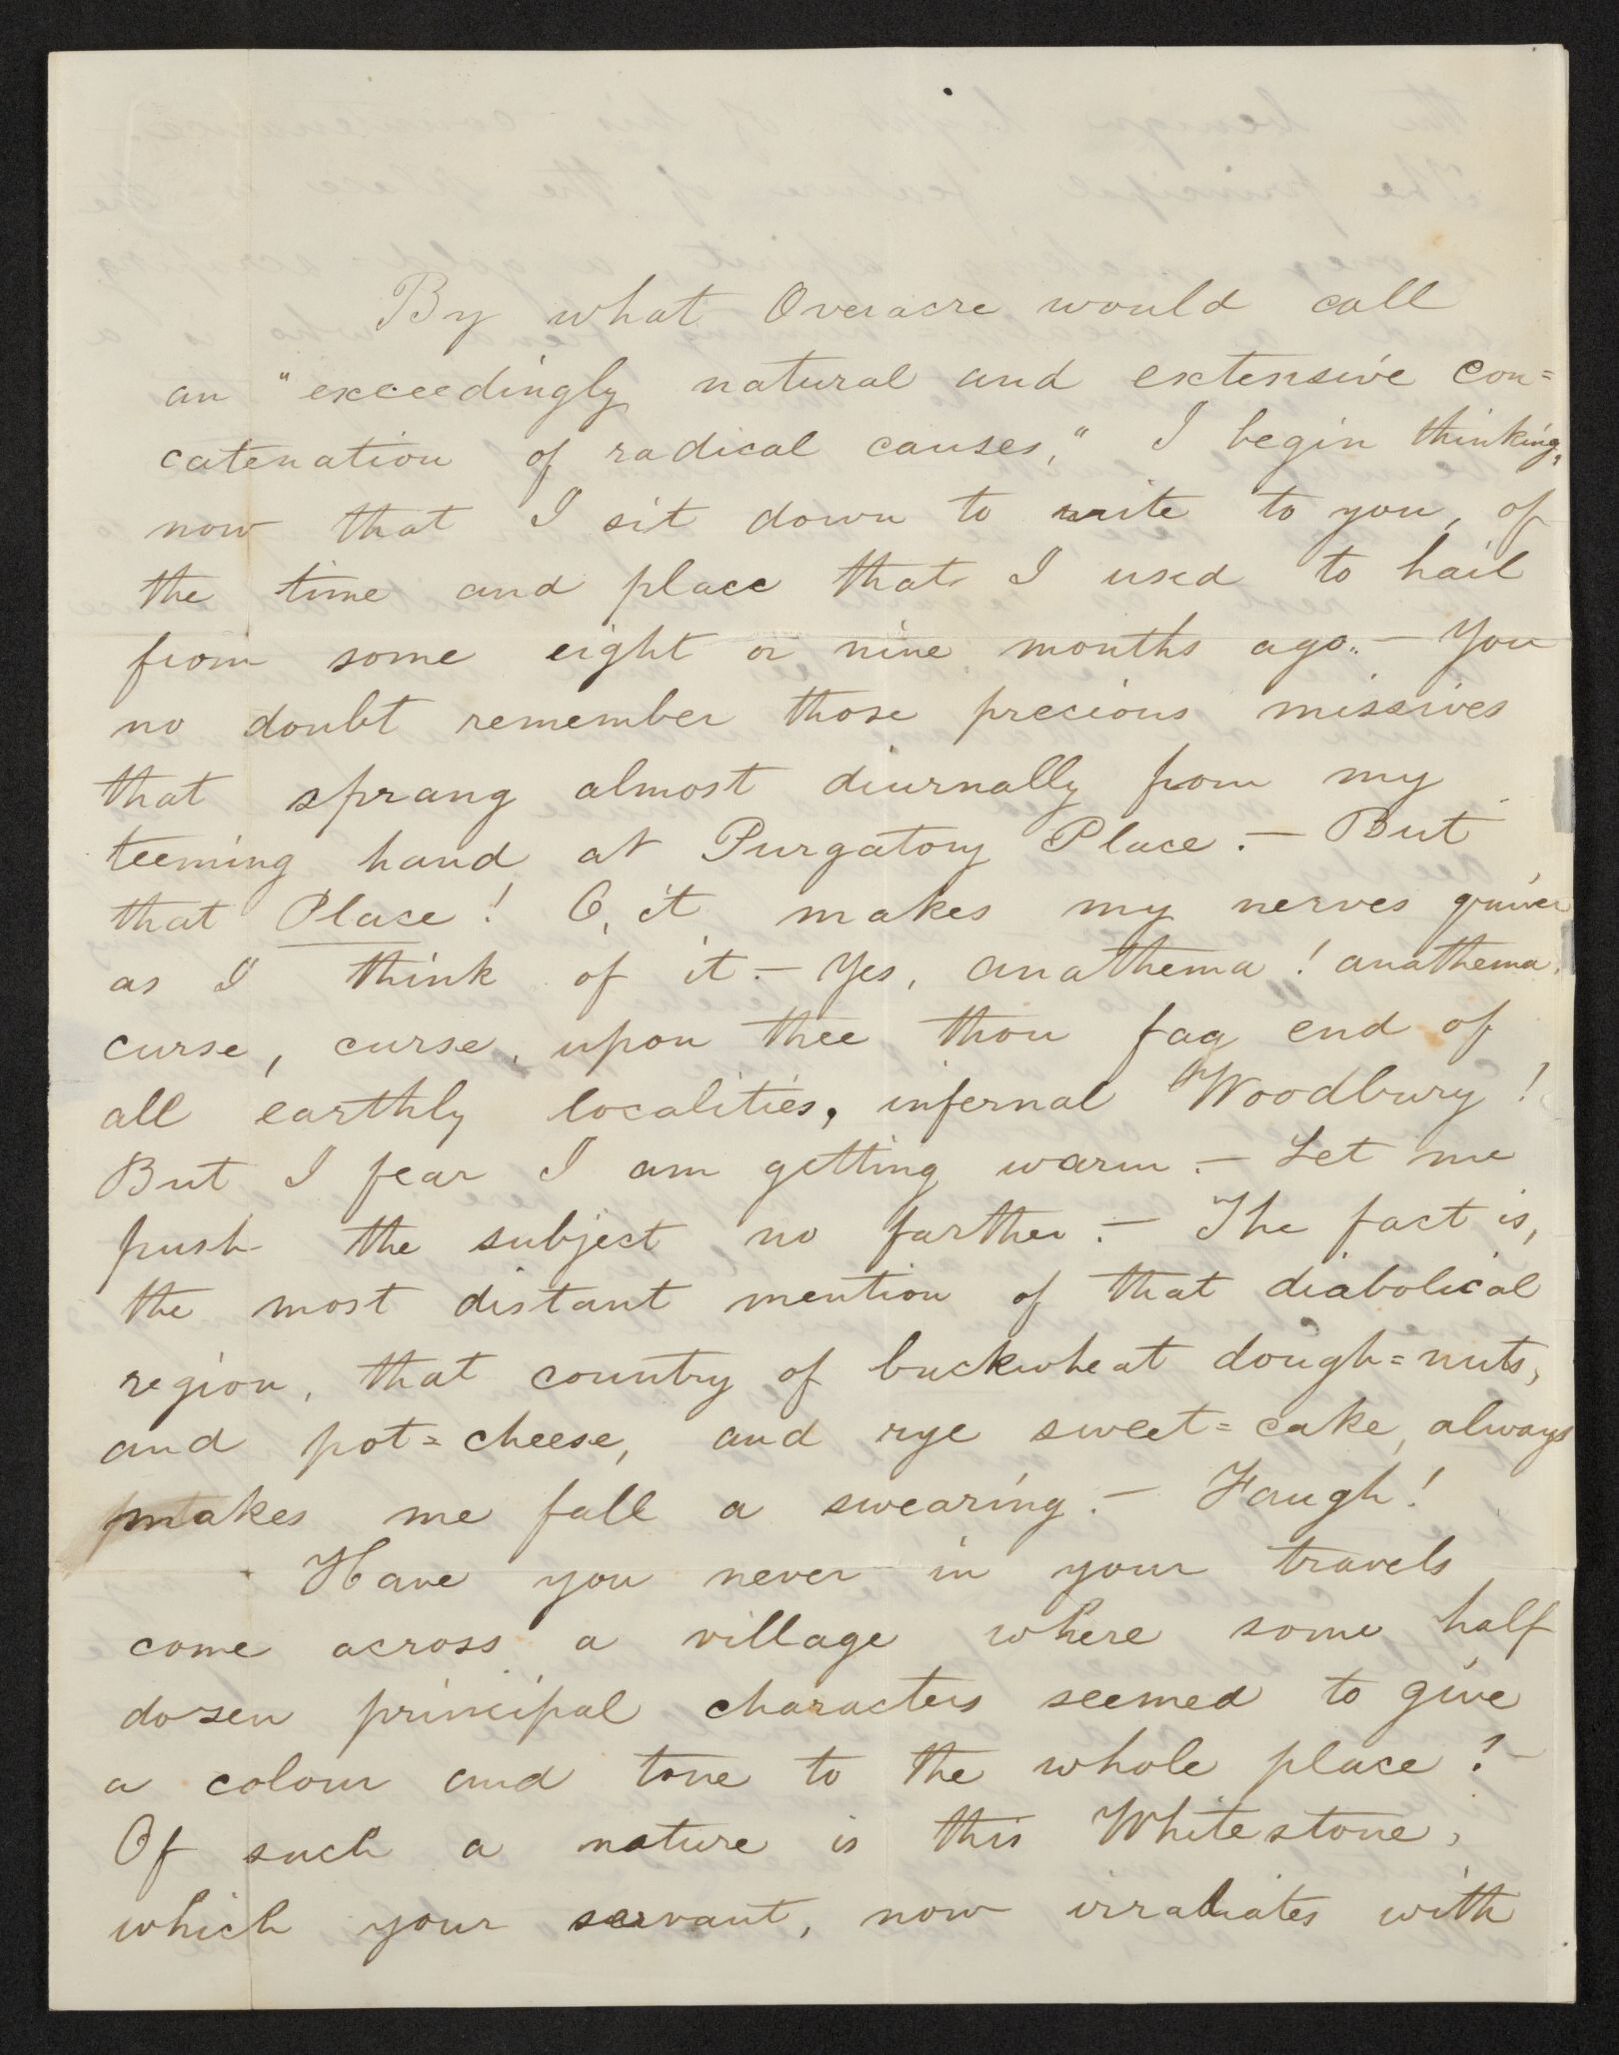 By what Overacre would call
an "exceedingly natural and extensive con=
catenation of radical causes," I begin thinking,
now that I sit down to write to you, of
the time and place that I used to hail
from some eight or nine months ago.— You
no doubt remember those precious missives
that sprang almost diurnally from my
teeming hand at Purgatory Place.— But
that Place! O, it makes my nerves quiver
as I think of it.— Yes, anathema! anathema,
curse, curse, upon thee thou fag end of
all earthly localities, infernal Woodbury!
But I fear I am getting warm.— Let me
push the subject no farther.— The fact is,
the most distant mention of that diabolical
region, that country of buckwheat dough=nuts,
and pot=cheese, and rye sweet=cake, always
makes me fall a swearing.— Faugh!
Have you never in your travels
come across a village where some half
dozen principal characters seemed to give
a colour and tone to the whole place?—
Of such a nature is this Whitestone,
which your servant, now irradiates with